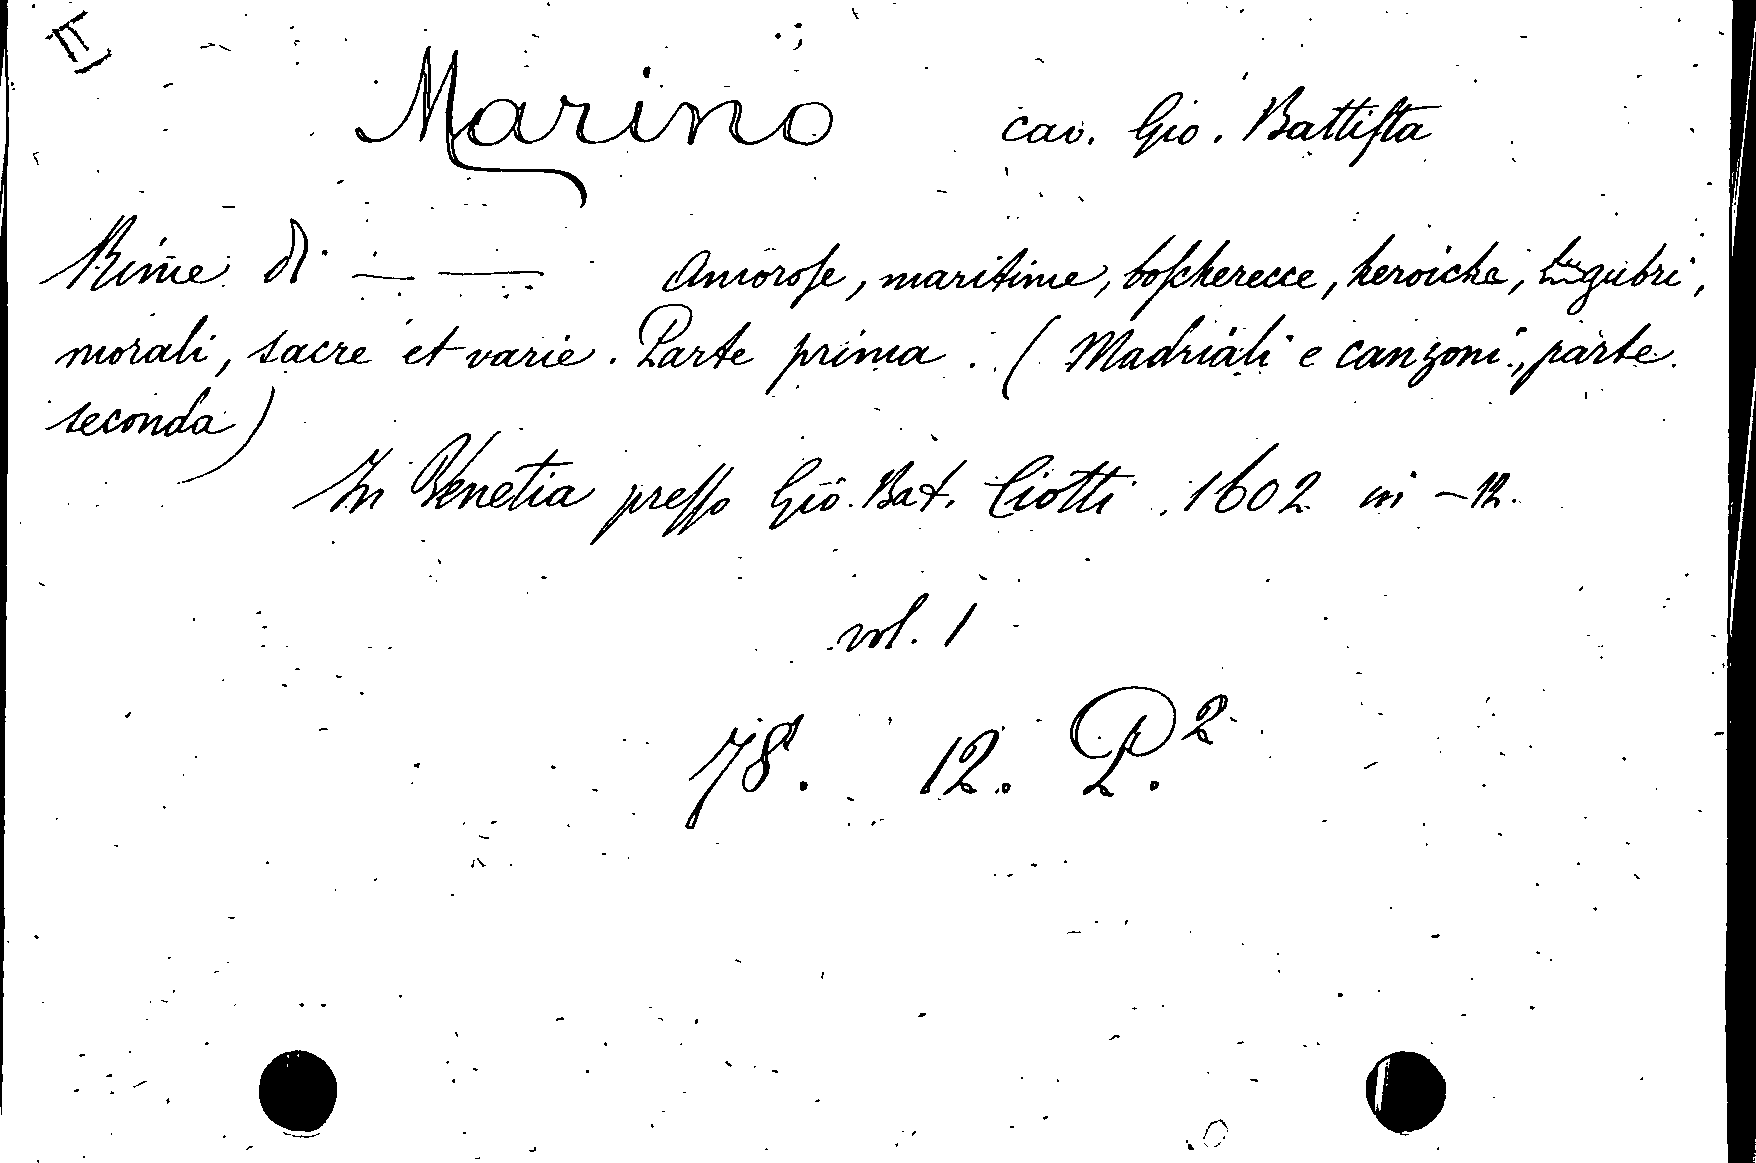 II
Marino cav. Gio. Battiſta
Rime di — — Amoroſe, maritime, boſcherecce, heroiche, lugubri,
morali, sacre et varie. Parte prima. (Madriali e canzoni, parte
seconda)
In Venetia preſſo Gio. Bat. Ciotti. 1602 in -12.
vol. 1
78. 12. P.²